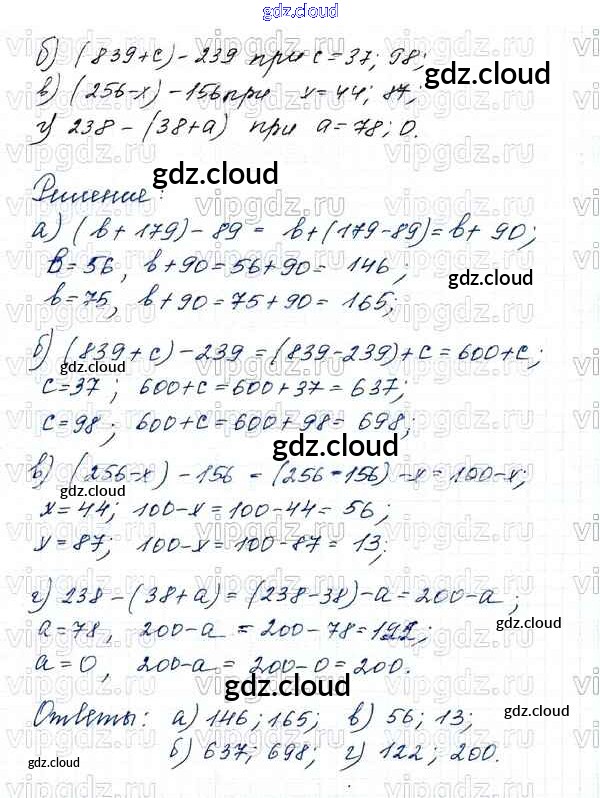 gdz.cloud
б) (839+c) - 239 при c = 37; 98;
в) (256-x) - 156 при x = 44; 87;
г) 238 - (38+a) при a = 78; 0.
Решение:
а) (b + 179) - 89 = b + (179-89) = b + 90;
b = 56, b + 90 = 56 + 90 = 146;
b = 75, b + 90 = 75 + 90 = 165;
б) (839 + c) - 239 = (839 - 239) + c = 600 + c;
c = 37; 600 + c = 600 + 37 = 637;
c = 98; 600 + c = 600 + 98 = 698;
в) (256-x) - 156 = (256 - 156) - x = 100 - x;
x = 44; 100 - x = 100 - 44 = 56;
x = 87; 100 - x = 100 - 87 = 13;
г) 238 - (38 + a) = (238 - 38) - a = 200 - a;
a = 78, 200 - a = 200 - 78 = 122;
a = 0, 200 - a = 200 - 0 = 200.
Ответы: а) 146; 165; в) 56; 13;
б) 637; 698; г) 122; 200.
gdz.cloud